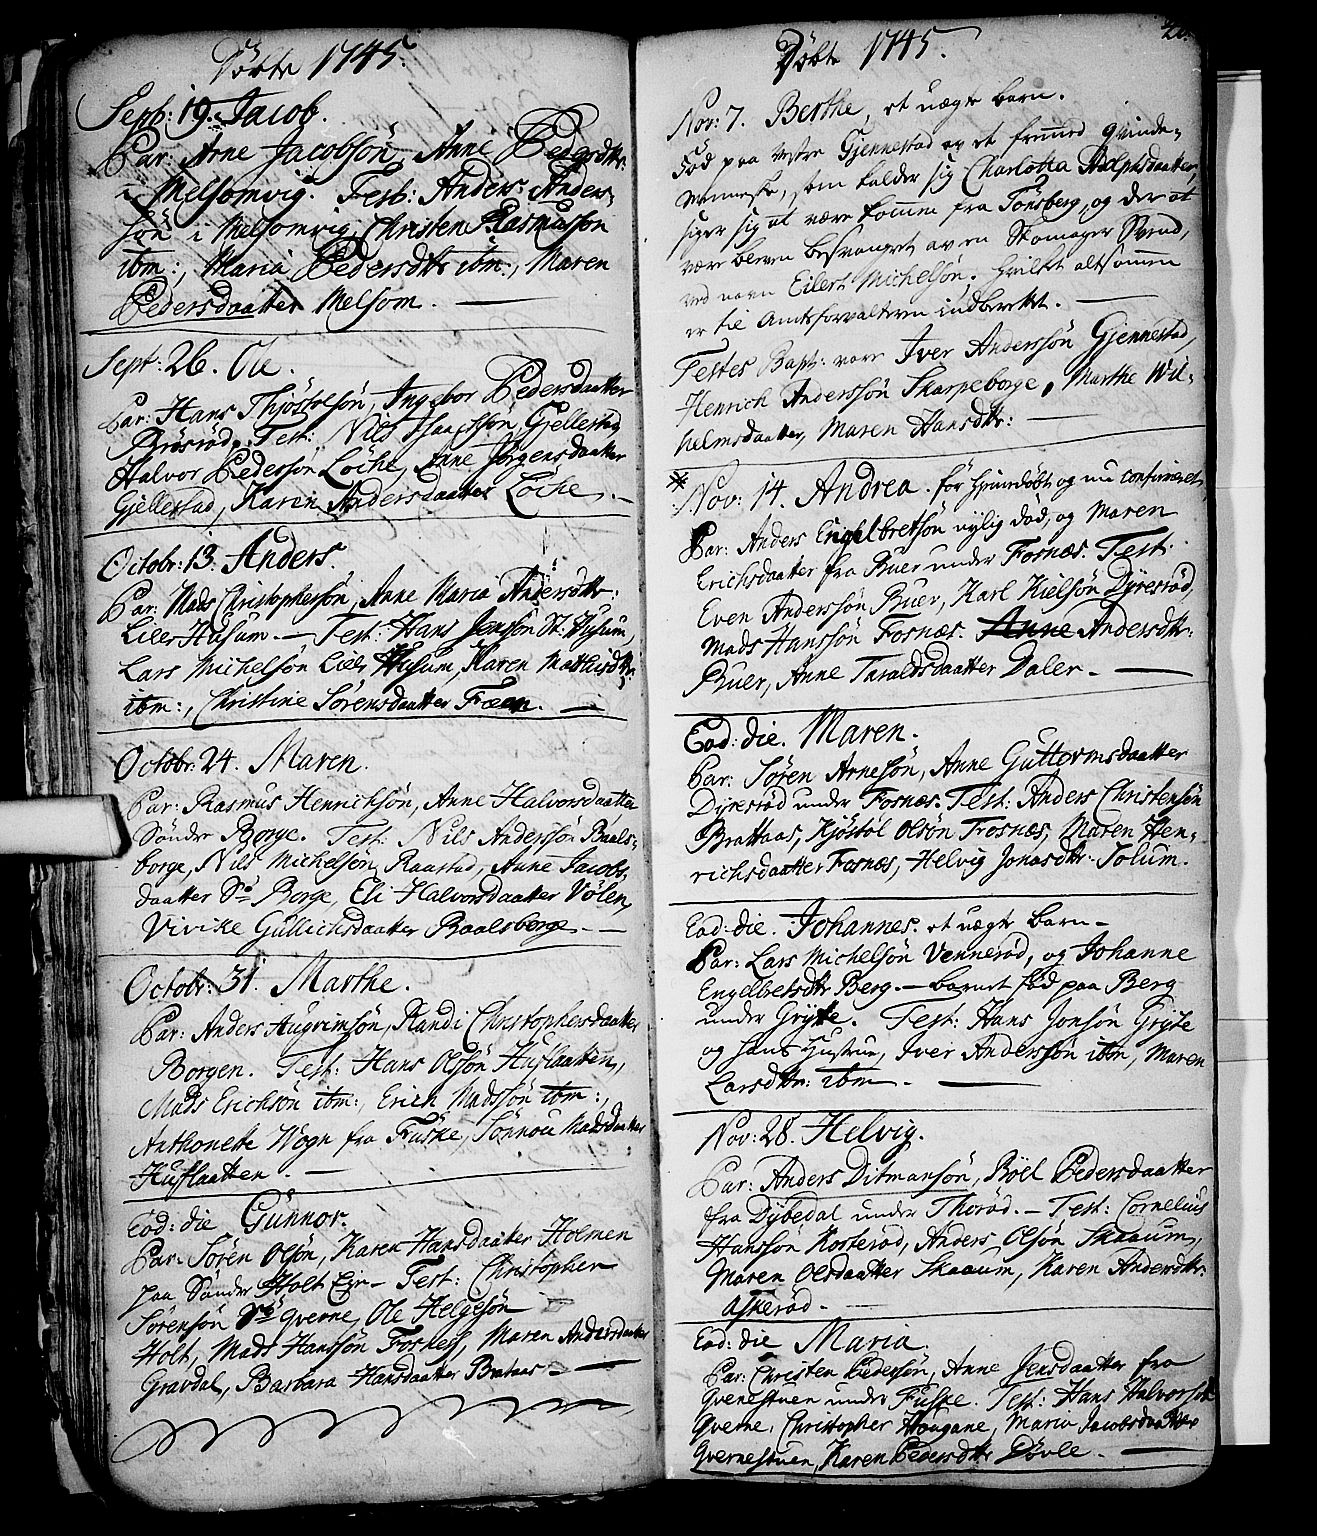 Döbte 1745.
Sept: 19. Jacob.
Par: Arne Jacobsön, Anne Pedersdttr:
i Melsomvig. Test: Anders Anders-
sön i Melsomvig, Christen Rasmusson
ibm:, Maria Pedersdttr ibm:, Maren
Pedersdaatter Melsom.
Sept: 26. Ole.
Par: Hans Thjöstelsön, Ingebor Pedersdaatter
Brosröd. Test: Nils Isaachsön Gjellestad,
Halvor Pedersön Löche, Anne Jörgensdaatter
Gjellestad, Karen Andersdaatter Löche.
Octobr: 13. Anders.
Par: Mads Christophersön, Anne Maria Andersdttr:
Lille Husum. Test: Hans Jensön St: Husum,
Lars Michelsön Lille Husum, Karen Mathisdttr
ibm:, Christine Sörensdaatter Fæen.
Octobr: 24. Maren.
Par: Rasmus Henrichsön, Anne Halvorsdaatter
Söndre Borge. Test: Nils Anderssön Baals-
borge, Nils Michelsön Raastad, Anne Jacobs-
daatter Sö: Borge, Eli Halvorsdaatter Völen,
Vivike Gullichsdaatter Baalsborge.
Octobr: 31. Marthe.
Par: Anders Augrimsön, Randi Christophersdaatter
Borgen. Test: Hans Olsön Huslaatten,
Mads Erichsön ibm:, Erich Madssön ibm:,
Anthonette Wogn fra Fuske, Sönnou Madsdaatter
Huflaatten.
Eod: die Gunnor.
Par: Sören Olsön, Karen Hansdaatter Holmen
paa Söndre Holt Eje. Test: Christopher
Sörensön Qverne, Ole Helgesön
Holt, Mads Hanssön Fosnes, Maren Andersdaatter
Gravdal, Barbara Hansdaatter Brataas
Döbte 1745.
Nov: 7. Berthe, et uægte barn.
Föd paa Vestre Gjennestad av et fremmed Qvinde-
menneske, som kalder sig Charlotta Adolphsdaatter,
siger sig at være kommen fra Tönsberg, og der at
være bleven besvangret av en Skomager Svend,
ved navn Eilert Michelsön. Hvilket altsammen
er til Amtsforvalteren indberettet.
Testes Bapt: vare Iver Anderssön Gjennestad,
Henrich Anderssön Skarpeborge, Marthe Wil-
helmsdaatter, Maren Hansdttr:
Nov: 14. Andrea. för hjemmedöbt og nu confirmeret,
Par: Anders Engelbretsön nylig död, og Maren
Erichsdaatter fra Buer under Fosnæs. Test:
Even Anderssön Buer, Karl Kielsön Dyresröd,
Mads Hanssön Fosnæs. Anne Andersdttr:
Buer, Anne Taraldsdaatter Daler.
Eod: die. Maren.
Par: Sören Arnesön, Anne Guttormsdaatter
Dyresröd under Fosnæs. Test: Anders Christensön
Brattaas, Kjöstöl Olsön Fosnæs, Maren Hen-
richsdaatter Fosnæs, Helvig Jonasdttr Solum.
Eod: die. Johannes. et uægte barn
Par: Lars Michelsön Vennerød, og Johanne
Engelbretsdttr Berg. barnet föd paa Berg
under Gryte. Test: Hans Jonsön Gryte
og hans Hustrue, Iver Anderssön ibm, Maren
Larsdttr: ibm.
Nov: 28. Helvig.
Par: Anders Ditmansön, Böel Pedersdaatter
fra Dybedal under Thoröd. Test: Cornelius
Hanssön Kosteröd, Anders Olsön Skaaum,
Maren Olsdaatter Skaaum, Karen Andersdttr.
Askeröd.
Eod: die Maria.
Par: Christen Pedersön, Anne Jensdaatter fra
Qvernestuen under Fuske. Test: Hans Halvorsön
Qverne, Christopher Haugane, Maria Jacobsdaatter
Qvernestuen, Karen Pedersdttr Dövle.